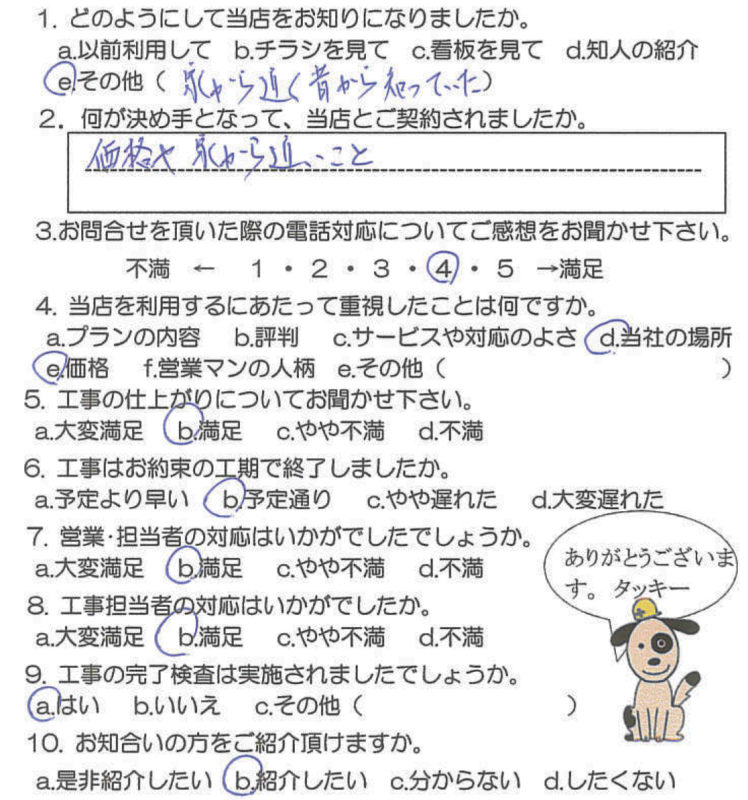 1. どのようにして当店をお知りになりましたか。
a.以前利用して b.チラシを見て c.看板を見て d.知人の紹介
e.その他（家から近く昔から知っていた）
2. 何が決め手となって、当店とご契約されましたか。
価格や家から近いこと
3.お問合せを頂いた際の電話対応についてご感想をお聞かせ下さい。
不満 ← 1・2・3・4・5 →満足
4. 当店を利用するにあたって重視したことは何ですか。
a.プランの内容 b.評判 c.サービスや対応のよさ d.当社の場所
e.価格 f.営業マンの人柄 e.その他（ ）
5. 工事の仕上がりについてお聞かせ下さい。
a.大変満足 b.満足 c.やや不満 d.不満
6. 工事はお約束の工期で終了しましたか。
a.予定より早い b.予定通り c.やや遅れた d.大変遅れた
7. 営業・担当者の対応はいかがでしたでしょうか。
a.大変満足 b.満足 c.やや不満 d.不満
ありがとうございま
す。 タッキー
8. 工事担当者の対応はいかがでしたか。
a.大変満足 b.満足 c.やや不満 d.不満
9. 工事の完了検査は実施されましたでしょうか。
a.はい b.いいえ c.その他（ ）
10. お知合いの方をご紹介頂けますか。
a.是非紹介したい b.紹介したい c.分からない d.したくない